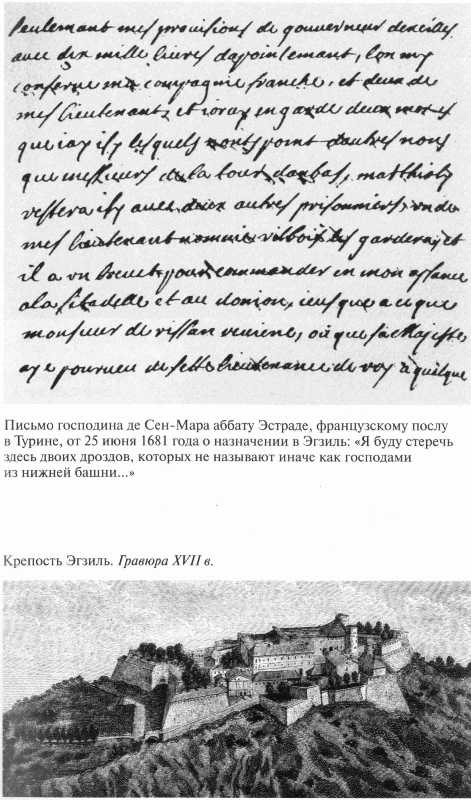 Seulemant mes provisions de gouverneur dexilles
avec dix mille livres dapointemant, lon my
conserve ma compagnie franche, et deux de
mes lieutenants, et joray en garde deux merles
que jay isy lesquels nonts point dautres noms
que messieurs de la tour danbas, matthioly
restera isy avec deux autres prisonniers, un de
mes lieutenant nommé vilbois les gardera, et
il a un brevet pour commander en mon absance
a la sitadelle et au donjon, jeusque a ce que
monsieur de rissan reviene, où que sa Majesté
aye pourveu de sette lieutenance de roy à quelque
Письмо господина де Сен-Мара аббату Эстраде, французскому послу
в Турине, от 25 июня 1681 года о назначении в Эгзиль: «Я буду стеречь
здесь двоих дроздов, которых не называют иначе как господами
из нижней башни...»
Крепость Эгзиль. Гравюра XVII в.